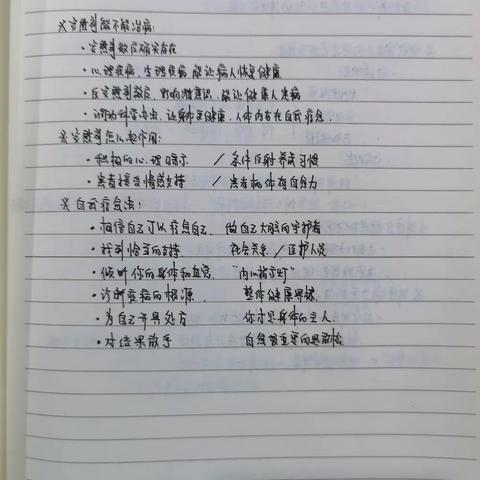 ※安慰剂能不能治病:
・安慰剂效应确实存在
・心理疾病,生理疾病,能让病人恢复健康
・反安慰剂效应,影响潜意识,能让健康人患病
・调动科学,让身体更健康,人体内存在自动痊愈.
※安慰剂怎么起作用:
・积极的心理暗示 / 条件反射养成习惯
・患者接受情感支持 / 患者机体存自愈力
※自我痊愈法:
・相信自己可以痊愈自己, 做自己大脑的守护者
・找到恰当的支持 社会关系/医护人员
・倾听你的身体和直觉 "内心指示灯"
・诊断疾病的根源, 整体健康
・为自己开具处方 你才是身体的主人.
・对结果放手 自我